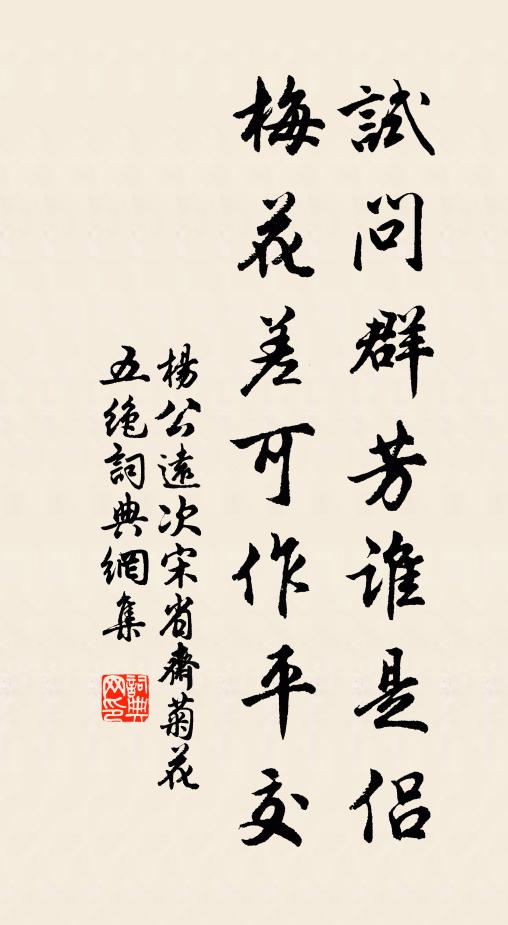 試問群芳誰是侶
梅花差可作平交
楊公遠次宋省齋菊花
五絶詞典網集
詞典
网印